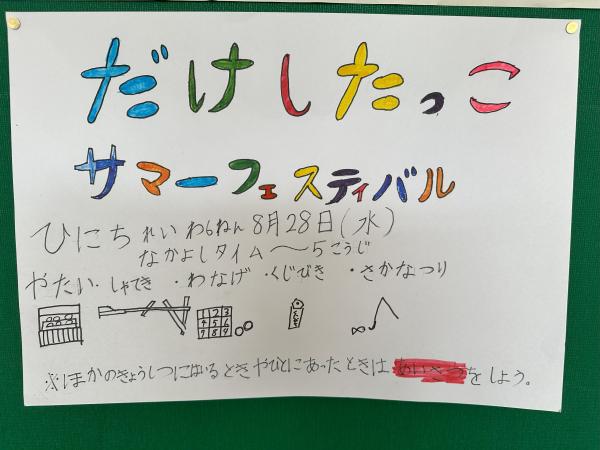 だけしたっこ
サマーフェスティバル
ひにち れいわ6ねん 8月28日(水)
なかよしタイム〜5こうじ
やたい・しゃてき ・わなげ ・くじびき ・さかなつり
1 2 3
4 5 6
7 8 9
※ほかのきょうしつにはいるときやひとにあったときはあいさつをしよう。